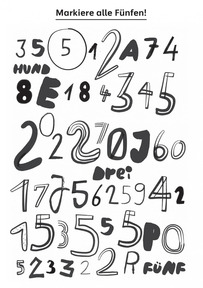 Markiere alle Fünfen!
35 5 12A74
HUND
8E18 4345
20270J60
DREI
17J5625942
153555PO
523322R FÜNF